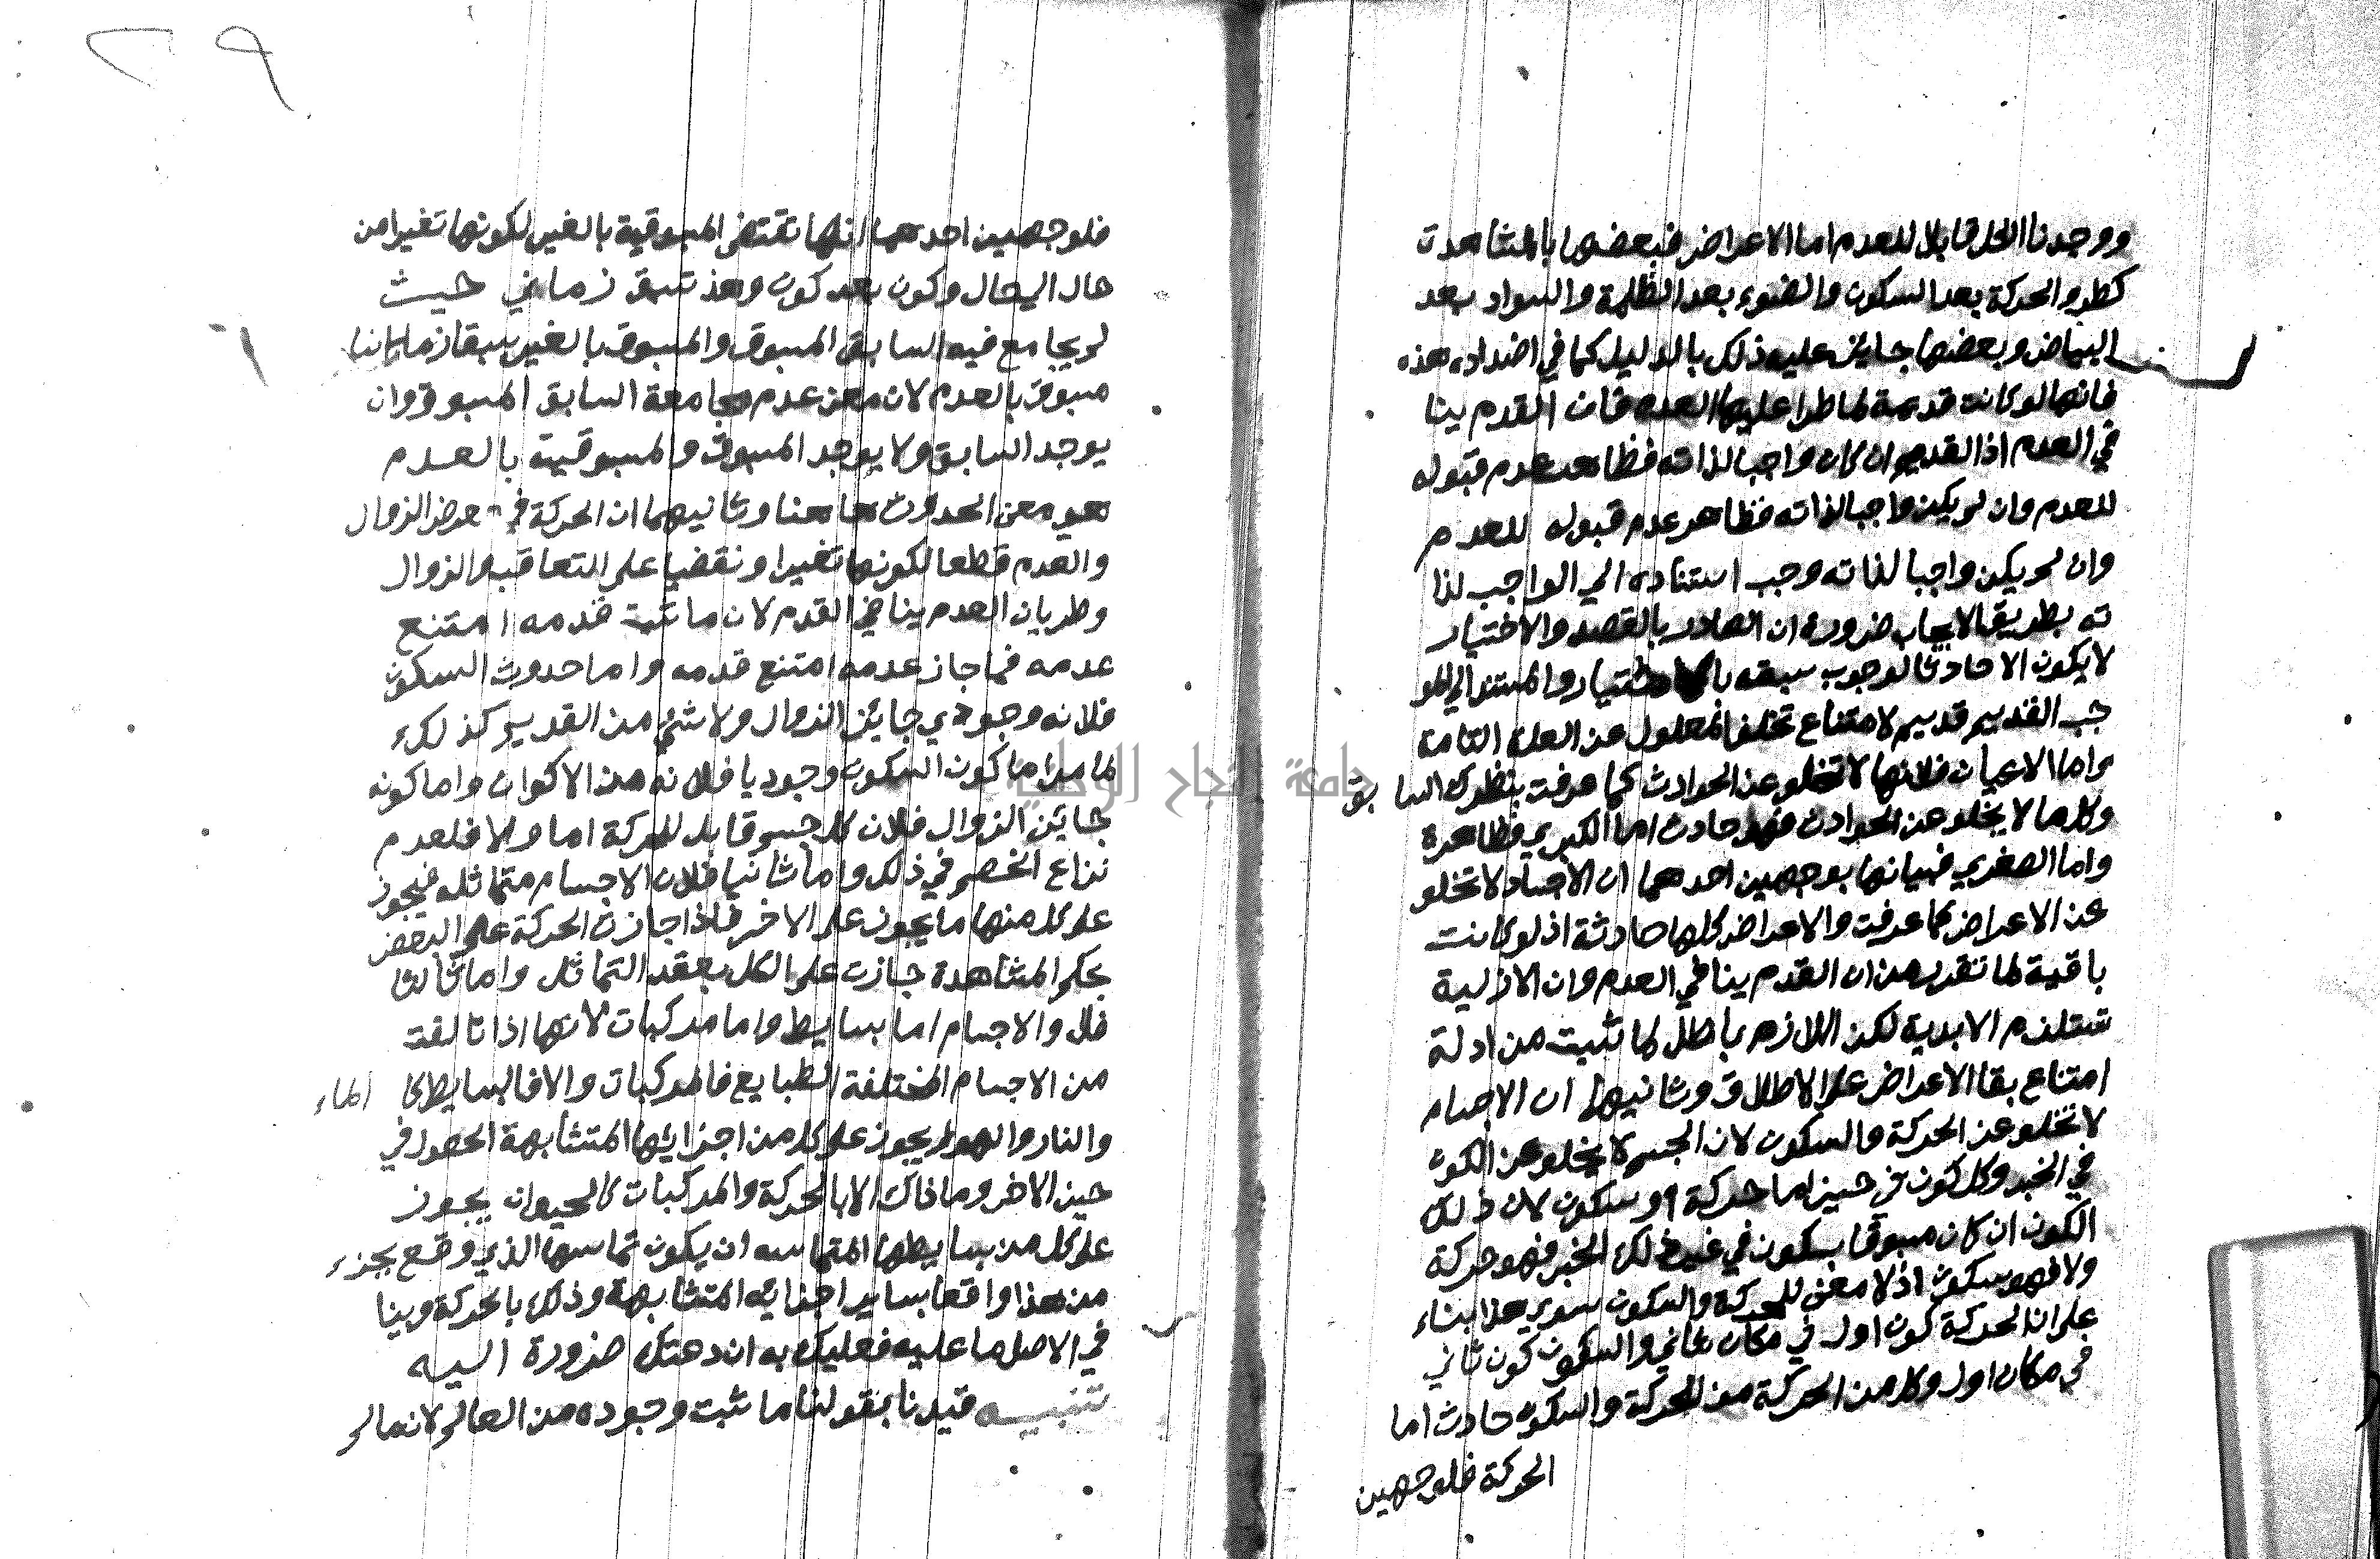 ووجدنا الكل قابلا للعدم اما الاعراض فبعضها بالمشاهدت
كطرو الحركة بعد السكون والضوء بعد الظلمة والسواد بعد
البياض وبعضها جايز عليه ذلك بالدليل كما في اضداد هذه
فانها لو كانت قديمة لما طرا عليها العدم فان القدم ينا
في العدم اذ القديم ان كان واجبا لذاته فظاهر عدم قبوله
للعدم وان لم يكن واجبا لذاته فظاهر عدم قبوله للعدم
وان لم يكن واجبا لذاته وجب استناده الي الواجب لذا
ته بطريق الايجاب ضرورة ان الصادر بالقصد والاختيار
لا يكون الا حادثا لوجوب سبقه بالاختيار والمستند الي المو
جب القديم قديم لامتناع تخلف المعلول عن العلة التامة
واما الاعيان فلانها لا تخلو عن الحوادث كما عرفت بنظرك السابق
وكل ما لا يخلو عن الحوادث فهو حادث اما الكبري فظاهرة
واما الصغري فبيانها بوجهين احدهما ان الاجساد لا تخلو
عن الاعراض كما عرفت والاعراض كلها حادثة اذ لو كانت
باقية لما تقرر من ان القدم ينافي العدم وان الازلية
تستلزم الابدية لكن اللازم باطل لما ثبت من ادلة
امتناع بقا الاعراض علي الاطلاق وثانيهما ان الاجسام
لا تخلو عن الحركة والسكون لان الجسم لا يخلو عن الكون
في الخبر وكل كون في حيز اما حركة او سكون لان ذلك
الكون ان كان مسبوقا بسكون في غير ذلك الخبر فهو حركة
ولا فهو سكون اذ لا معني للحركة والسكون سوي هذا بناء
علي ان الحركة كون اول في مكان ثاني والسكون كون ثاني
في مكان اول وكل من الحركة من الحركة والسكون حادث اما
الحركة فلوجهين
٢٩
فلوجهين احدهما انها تقتضي المسبوقية بالغير لكونها تغيرا من
حال الي حال وكون بعد كون وهذ سبق زماني حيث
لم يجامع فيه السابق المسبوق والمسبوق بالغير سبقا زمانيا
مسبوق بالعدم لان معني عدم مجامعة السابق المسبوق وان
يوجد السابق ولا يوجد المسبوق والمسبوقية بالعدم
هو معني الحدوث هاهنا وثانيهما ان الحركة في معرض الزوال
والعدم قطعا لكونها تغيرا ونقضيا علي التعاقب والزوال
وطريان العدم ينافي القدم لان ما ثبت قدمه امتنع
عدمه فما جاز عدمه امتنع قدمه واما حدوث السكون
فلانه وجودي جايز الزوال ولا شئ من القديم كذلك
لما مر اما كون السكون وجوديا فلانه من الاكوان واما كونه
جايز الزوال فلان كل جسم قابل للحركة اما ولا فلعدم
نزاع الخصم في ذلك واما ثانيا فلان الاجسام متماثله فيجوز
علي كل منها ما يجوز علي الاخر فاذا جازت الحركة علي البعض
بحكم المشاهدة جازت علي الكل بعقد التماثل واما ثالثا
فلا والاجسام اما بسايط واما مركبات لانها اذا تالفت
من الاجسام المختلفة الطبايع فالمركبات والا فالبسايط كا الماء
والنار والهوا يجوز علي كل من اجزايها المتشابهة الحصول في
حيز الاخر وما ذاك الا بالحركة والمركبات كالحيوان يجوز
علي كل من بسايطها المتماسه ان يكون تماسها الذي وقع بجزء
من هذا واقعا بساير اجزايه المتشابهة وذلك بالحركة وبينا
في الاصل ما عليه فعليك به ان دعتك ضرورة اليه
تنبيه قيدنا بقولنا ما ثبت وجوده من العالم لانه ما لم